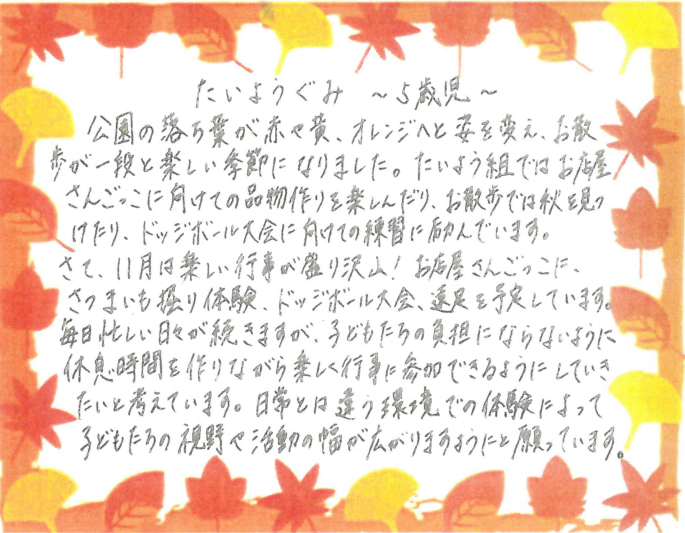 たいようぐみ ～5歳児～
公園の落ち葉が赤や黄、オレンジへと姿を変え、お散
歩が一段と楽しい季節になりました。たいよう組ではお店屋
さんごっこに向けての品物作りを楽しんだり、お散歩では秋を見つ
けたり、ドッジボール大会に向けての練習に励んでいます。
さて、11月は楽しい行事が盛り沢山！お店屋さんごっこに、
さつまいも掘り体験、ドッジボール大会、遠足を予定しています。
毎日忙しい日々が続きますが、子どもたちの負担にならないように
休息時間を作りながら楽しく行事に参加できるようにしていき
たいと考えています。日常とは違う環境での体験によって
子どもたちの視野や活動の幅が広がりますようにと願っています。